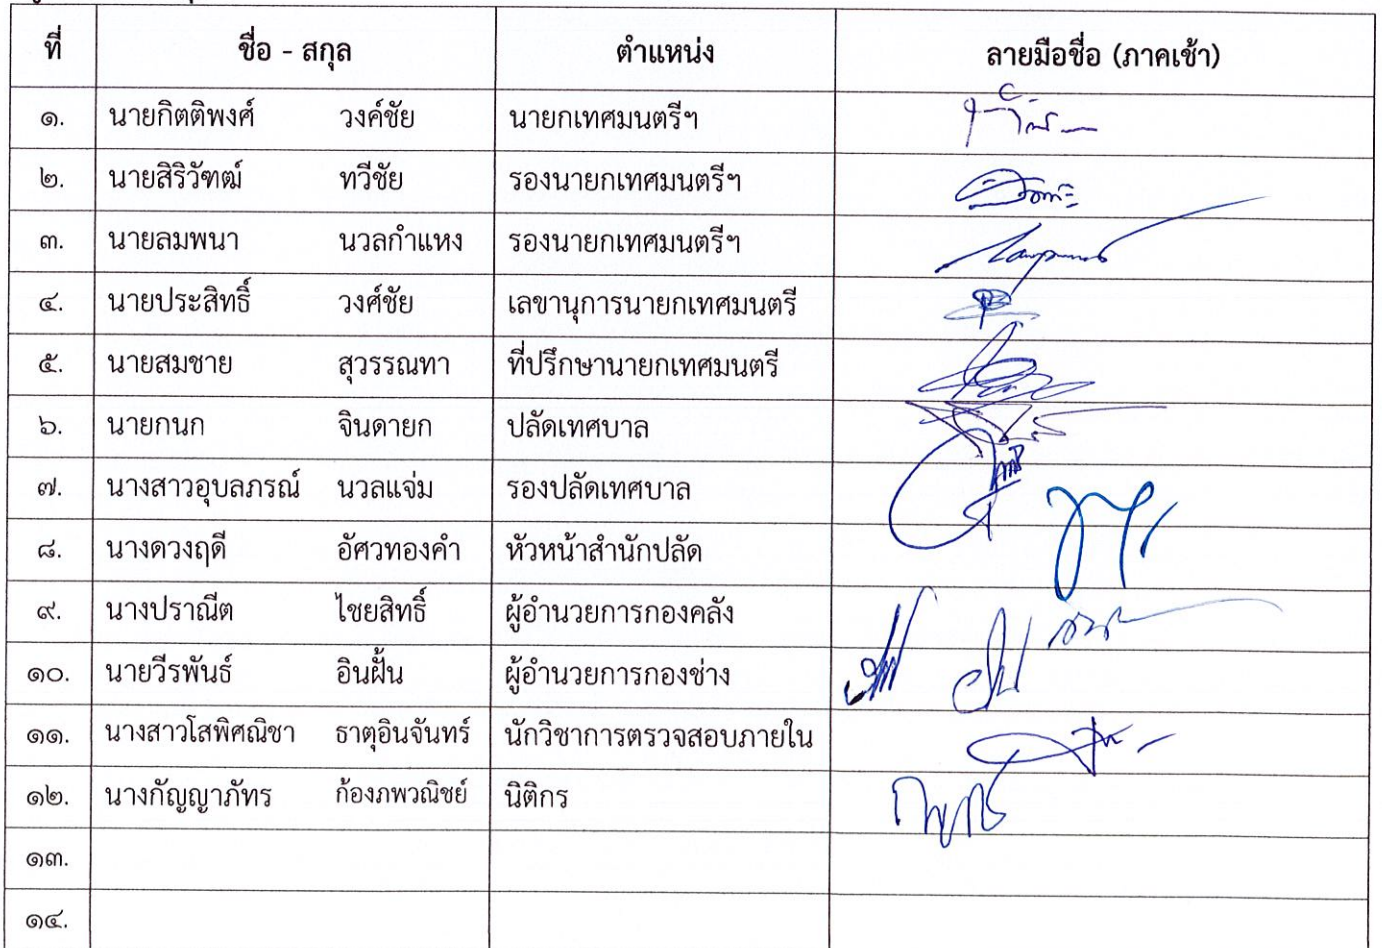 ที่ ชื่อ - สกุล ตำแหน่ง ลายมือชื่อ (ภาคเช้า)
๑. นายกิตติพงศ์ วงค์ชัย นายกเทศมนตรีฯ
๒. นายสิริวัฑฒ์ ทวีชัย รองนายกเทศมนตรีฯ
๓. นายลมพนา นวลกำแหง รองนายกเทศมนตรีฯ
๔. นายประสิทธิ์ วงศ์ชัย เลขานุการนายกเทศมนตรี
๕. นายสมชาย สุวรรณทา ที่ปรึกษานายกเทศมนตรี
๖. นายกนก จินดายก ปลัดเทศบาล
๗. นางสาวอุบลภรณ์ นวลแจ่ม รองปลัดเทศบาล
๘. นางดวงฤดี อัศวทองคำ หัวหน้าสำนักปลัด
๙. นางปราณีต ไชยสิทธิ์ ผู้อำนวยการกองคลัง
๑๐. นายวีรพันธ์ อินฝั้น ผู้อำนวยการกองช่าง
๑๑. นางสาวโสพิศณิชา ธาตุอินจันทร์ นักวิชาการตรวจสอบภายใน
๑๒. นางกัญญาภัทร ก้องภพวณิชย์ นิติกร
๑๓.
๑๔.